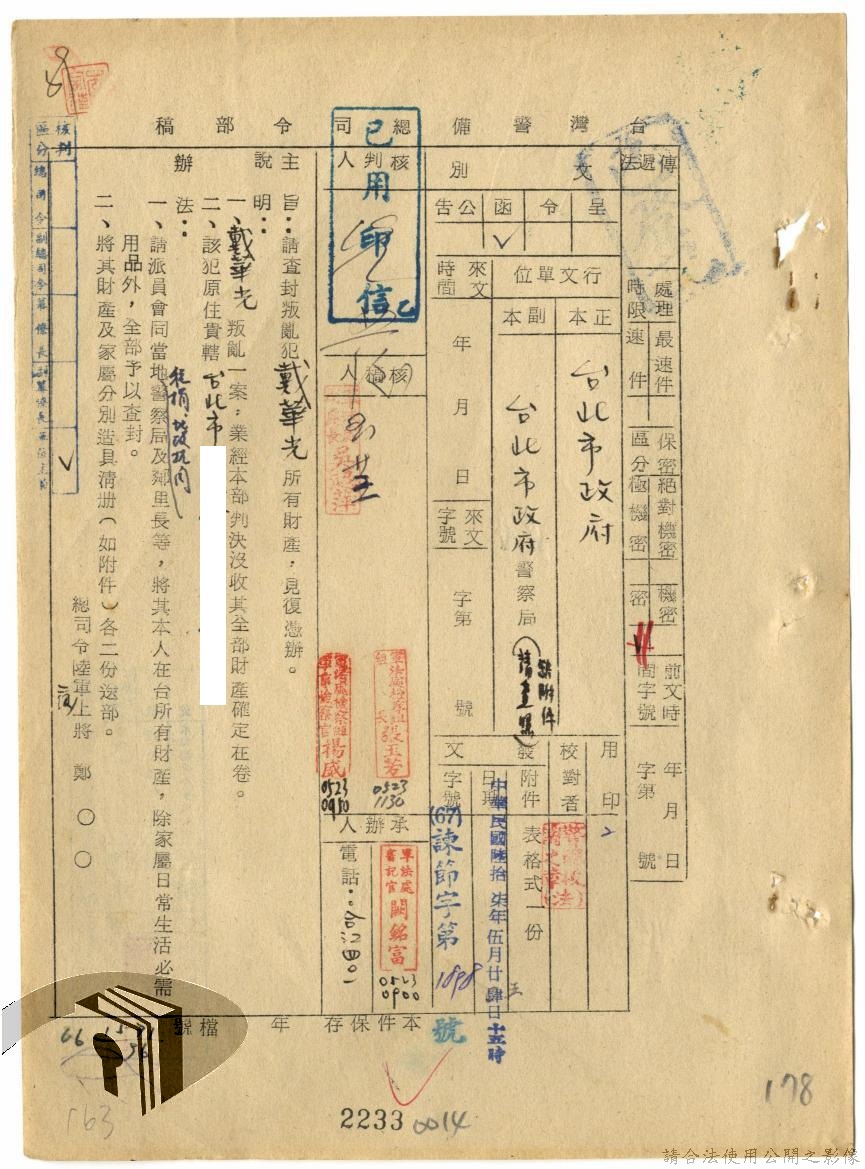 台灣警備總司令部稿
傳遞法
處理時限
最速件
速件
保密區分
絕對機密
極機密
機密
密
前文時間字號
年月日
字第號
文別
呈
令
函
公告
✓
行文單位
正本
台北市政府
副本
台北市政府警察局
來文時間
年月日
來文字號
字第號
用印
校對者
發文
附件
表格式一份
日期
中華民國陸拾柒年伍月廿肆日十五時
字號
(67)諫節字第1898號
核判人
已用印信
乙
核稿人
軍法處檢察組組長張玉芳
0523
1130
軍法處檢察組軍事檢察官楊威
0523
0950
承辦人
軍法處書記官闕銘富
0523
0900
電話：合江四〇一
本件保存年
檔號
主旨：請查封叛亂犯戴華光所有財產，見復憑辦。
說明：
一、戴華光叛亂一案，業經本部判決沒收其全部財產確定在卷。
二、該犯原住貴轄台北市
辦法：
一、請派員會同當地警察局及鄰里長等，將其本人在台所有財產，除家屬日常生活必需
用品外，全部予以查封。
二、將其財產及家屬分別造具清册（如附件）各二份送部。
總司令陸軍上將 鄭〇〇
核判區分
總司令
副總司令
✓
2233
0014
178
163
請合法使用公開之影像